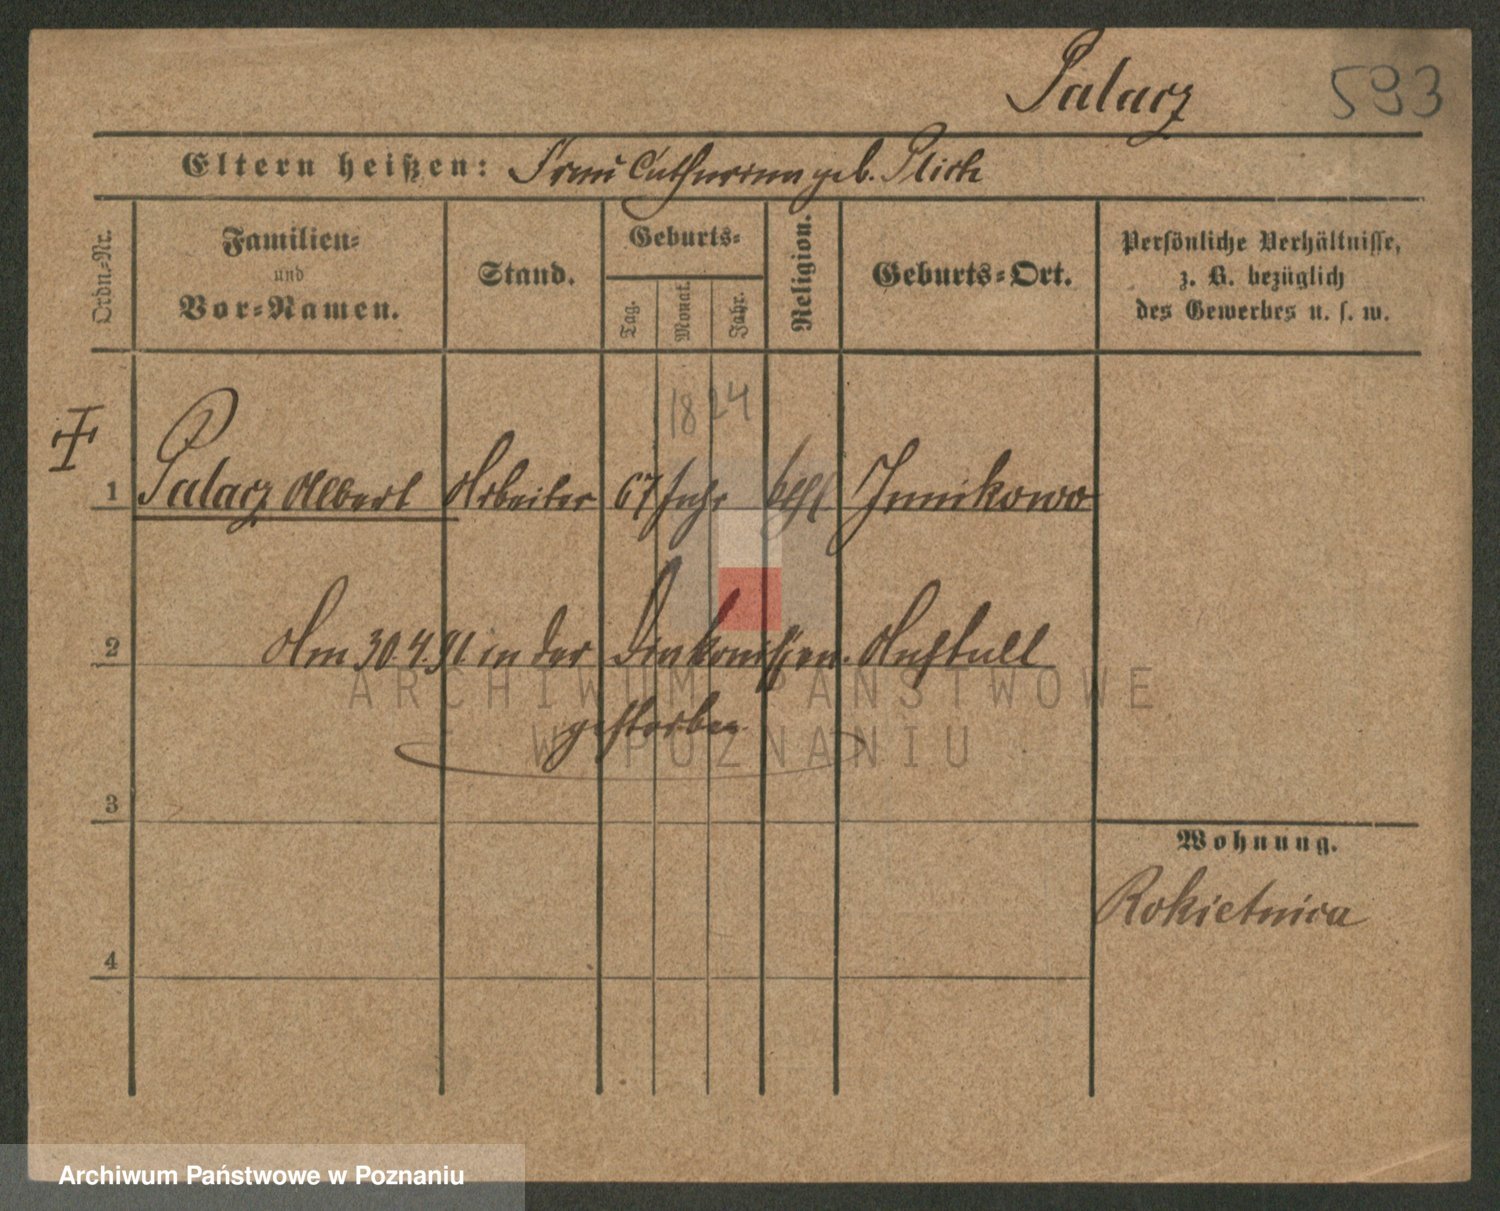 Palacz 593
Eltern heißen: Frau Catharina geb. Plich
Ordn.-Nr.
Familien-
und
Vor-Namen.
Stand.
Geburts-
Tag.
Monat.
Jahr.
Religion.
Geburts-Ort.
Persönliche Verhältnisse,
z. B. bezüglich
des Gewerbes u. s. w.
1824
1 Palacz Albert Arbeiter 67 Jahr kath Junikowo
2 Am 30.4.91. in der Diakonissen-Anstalt
gestorben
3
4
Wohnung.
Rokietnica
ARCHIWUM PAŃSTWOWE
W POZNANIU
Archiwum Państwowe w Poznaniu